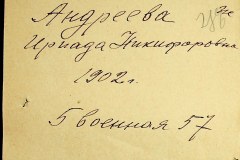 Андреева
Ириада Никифоровна
1902 г.
5 военная 57